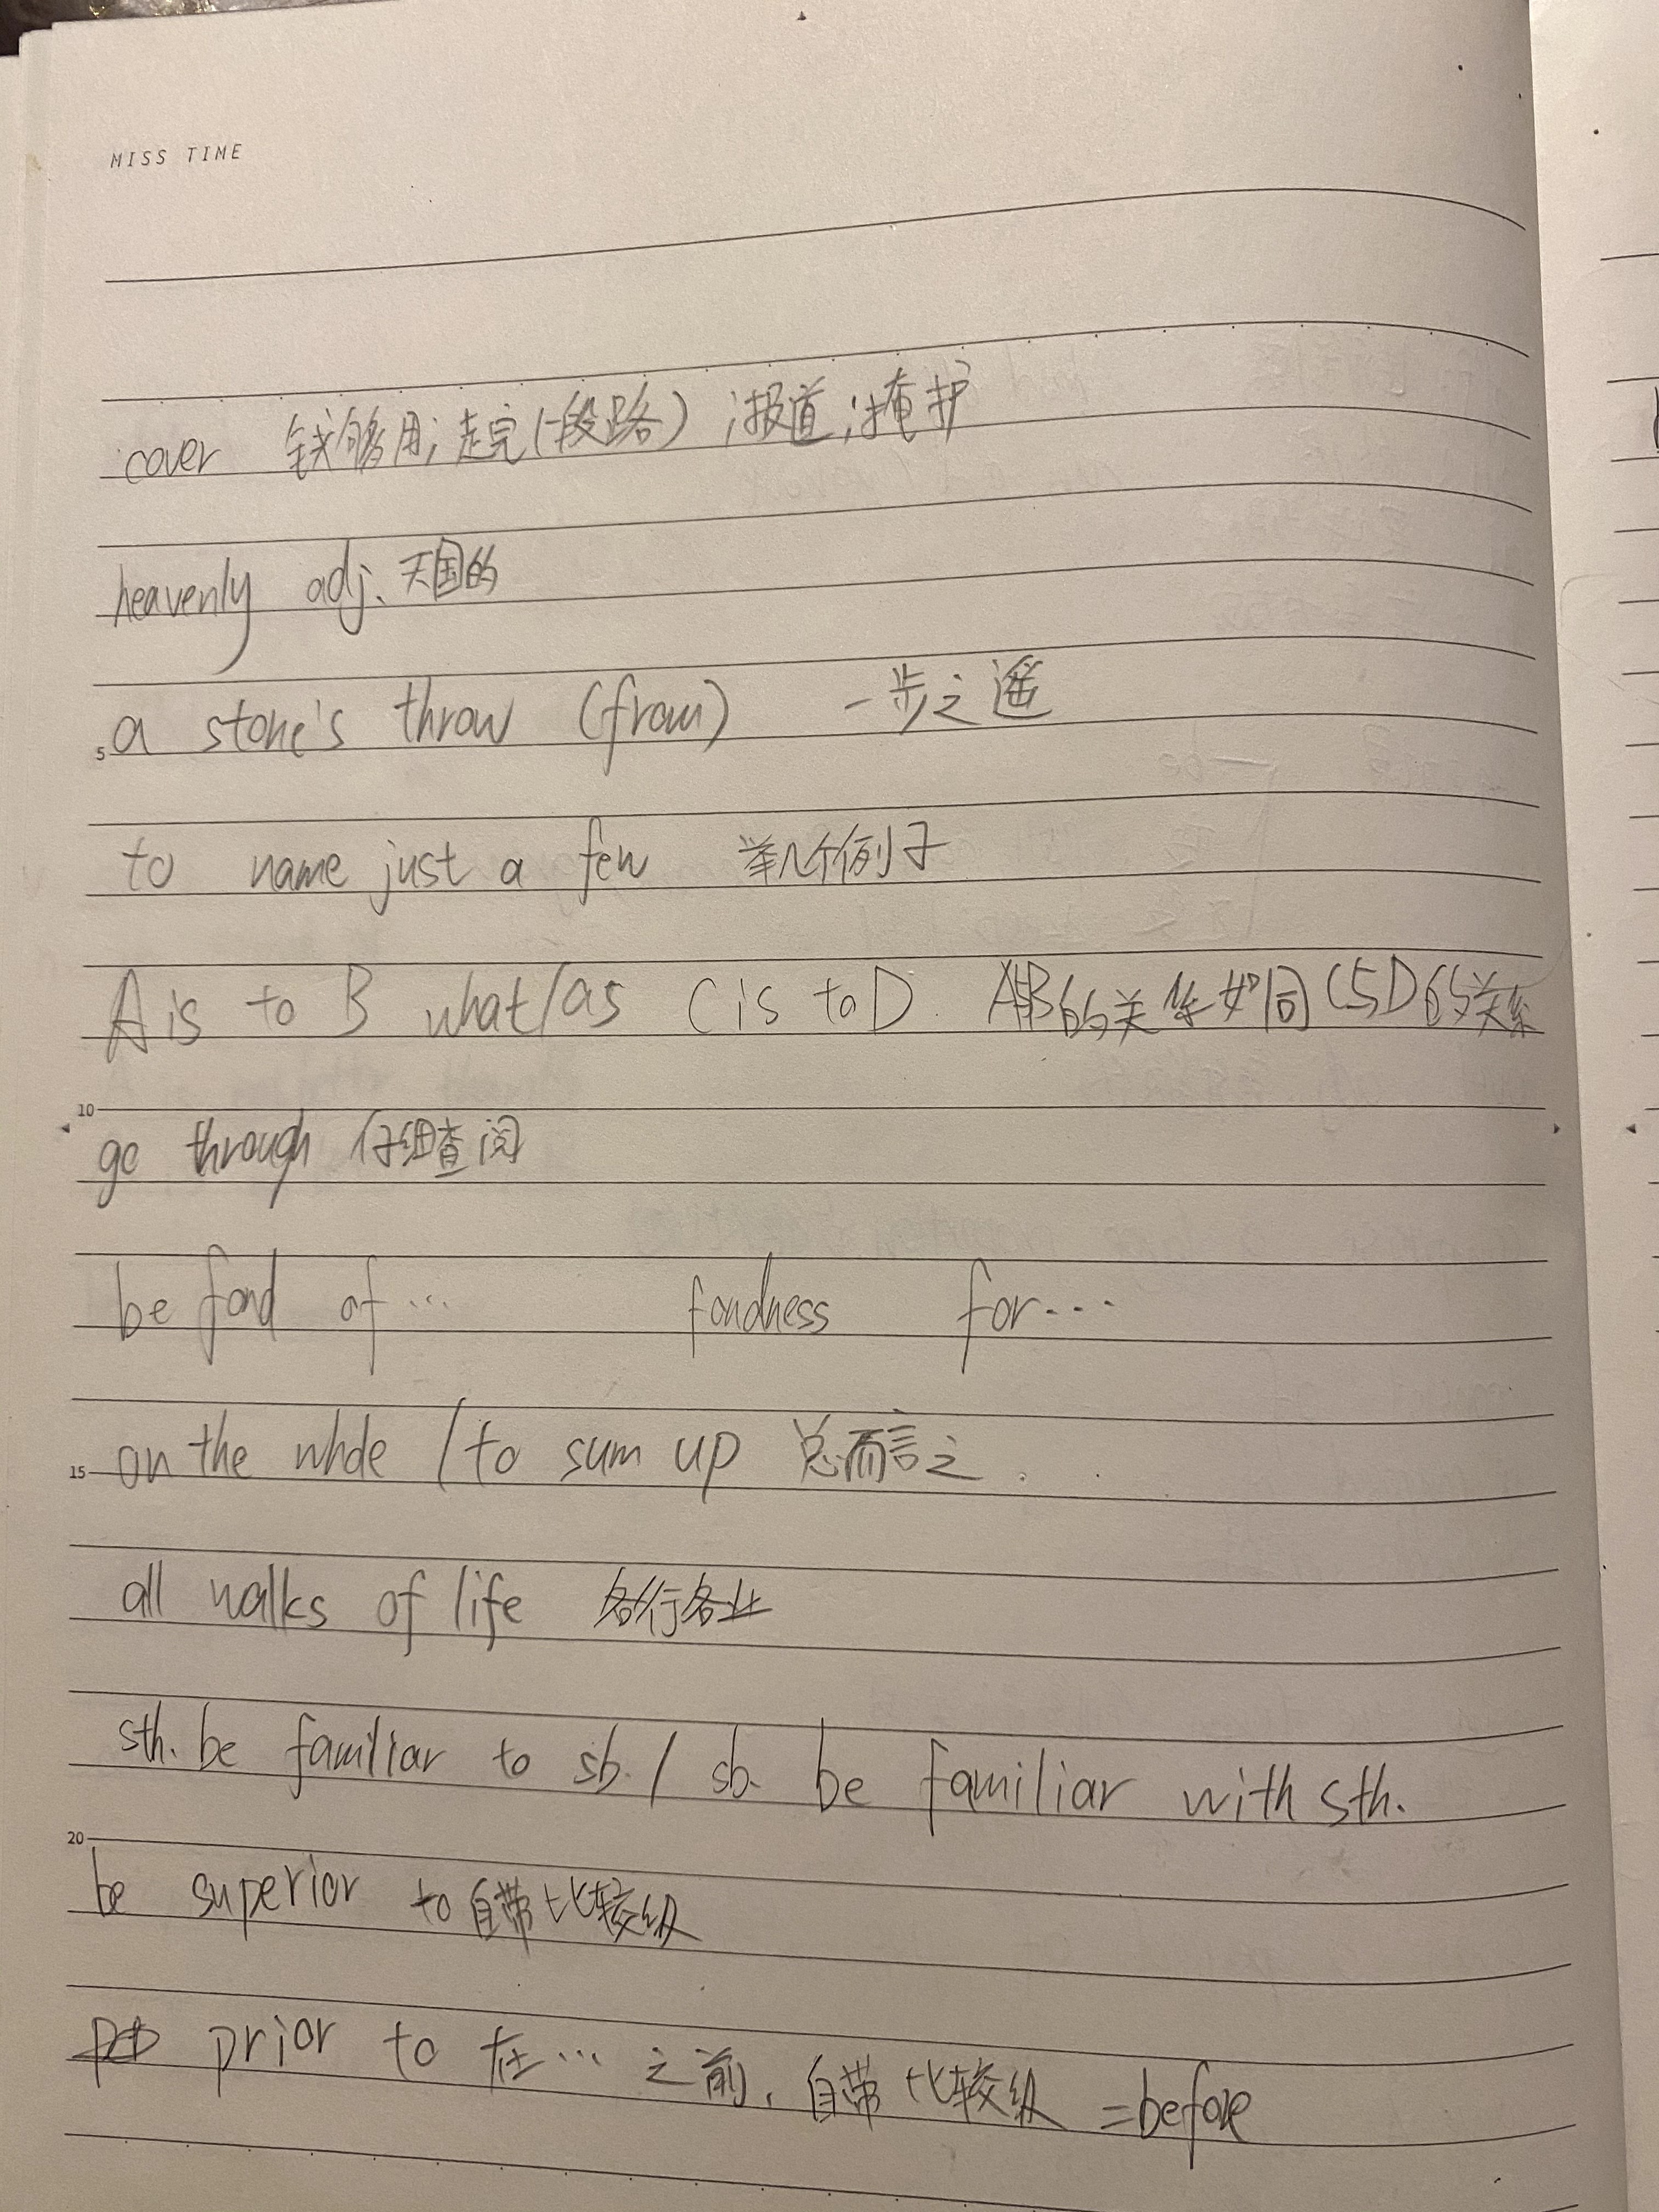 MISS TIME
cover 钱够用;走完(一段路);报道;掩护
heavenly adj. 天国的
5 a stone's throw (from) 一步之遥
to name just a few 举几个例子
A is to B what/as C is to D. AB的关系如同C与D的关系
10
go through 仔细查阅
be fond of ... fondness for...
15 on the whole / to sum up 总而言之
all walks of life 各行各业
sth. be familiar to sb. / sb. be familiar with sth.
20
be superior to 自带比较级
prior to 在...之前, 自带比较级 =before